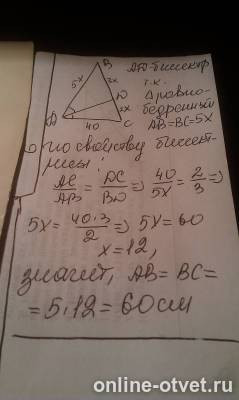 B
AD-биссектр
т.к.
5x
3x
D
Δ равно-
бедренный
2x
AB=BC=5x
A
40
C
по свойству биссект-
рисы:
AC/AB = DC/BD => 40/5x = 2/3 =>
5x = 40·3/2 => 5x = 60
x=12,
значит, AB = BC =
= 5·12 = 60см
online-otvet.ru